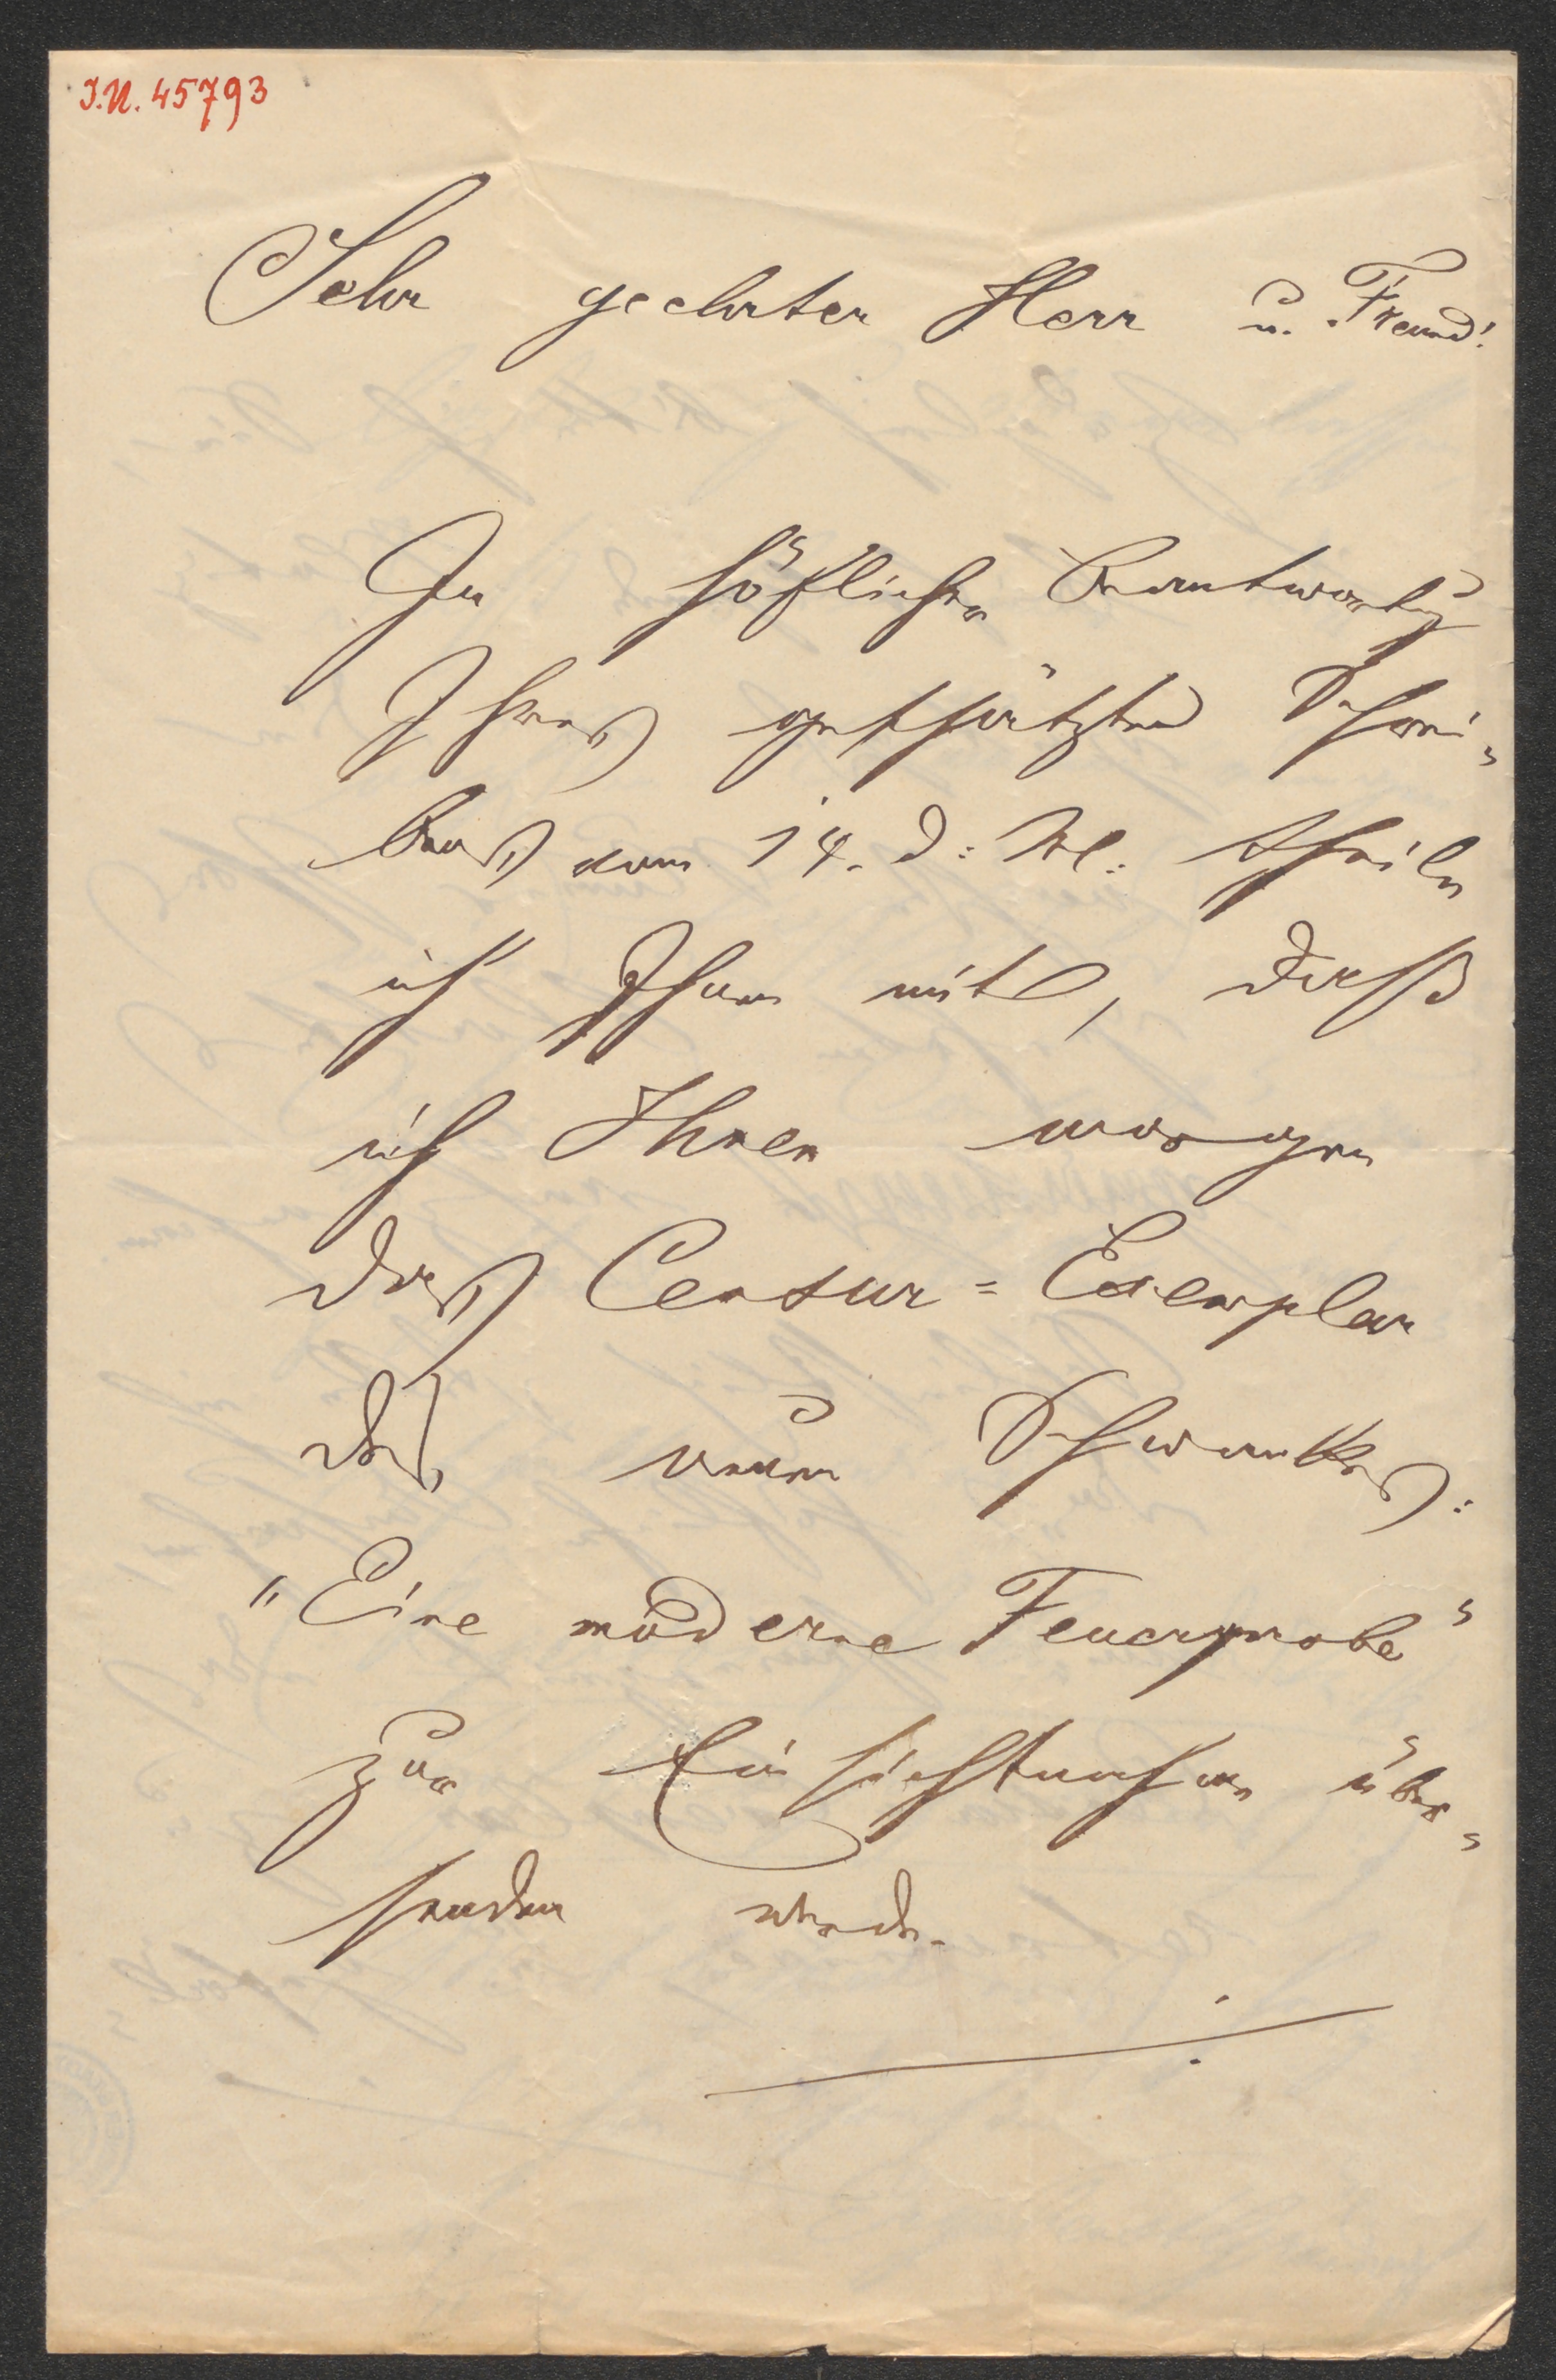 I.N. 45793
Sehr geehrter Herr u. Freund!
In höflicher Beantwortg
Ihres geschätzten Schrei-
bens vom 14. d: M: theile
ich Ihnen mit, daß
ich Ihnen morgen
das Censur-Exemplar
des neuen Schwankes:
"Eine moderne Feuerprobe"
zur Einsichtnahme über-
senden werde.